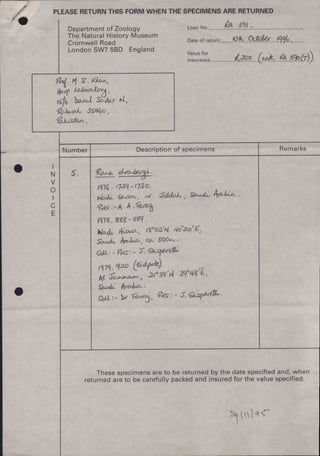 PLEASE RETURN THIS FORM WHEN THE SPECIMENS ARE RETURNED
Department of Zoology
The Natural History Museum
Cromwell Road
London SW7 5BD England
Loan No. RA 011.
Date of return 10th October 1996
Value for
Insurance £200
Prof. M. S. Khan,
Herp Laboratory,
15/6 Darul Sadar N,
Rabwah 35460,
Pakistan.
Number
Description of specimens
Remarks
INVOICE
5.
Rana ehrenbergi.
1976. 1729-1730.
Wadi Jiddah, Saudi Arabia.
Pres:- A. A. Farag
1978. 888-889.
Wadi 18°02'N 40°20'E,
Saudi Arabia, ca. 800m.
Coll:- Pres:- J. Gasperetti
1979. 920 (tadpole).
Al Jammum, 21°38'N 39°48'E.
Saudi Arabia.
Coll:- Dr Farag, Pres:- J. Gasperetti.
These specimens are to be returned by the date specified and, when
returned are to be carefully packed and insured for the value specified.
29/11/95